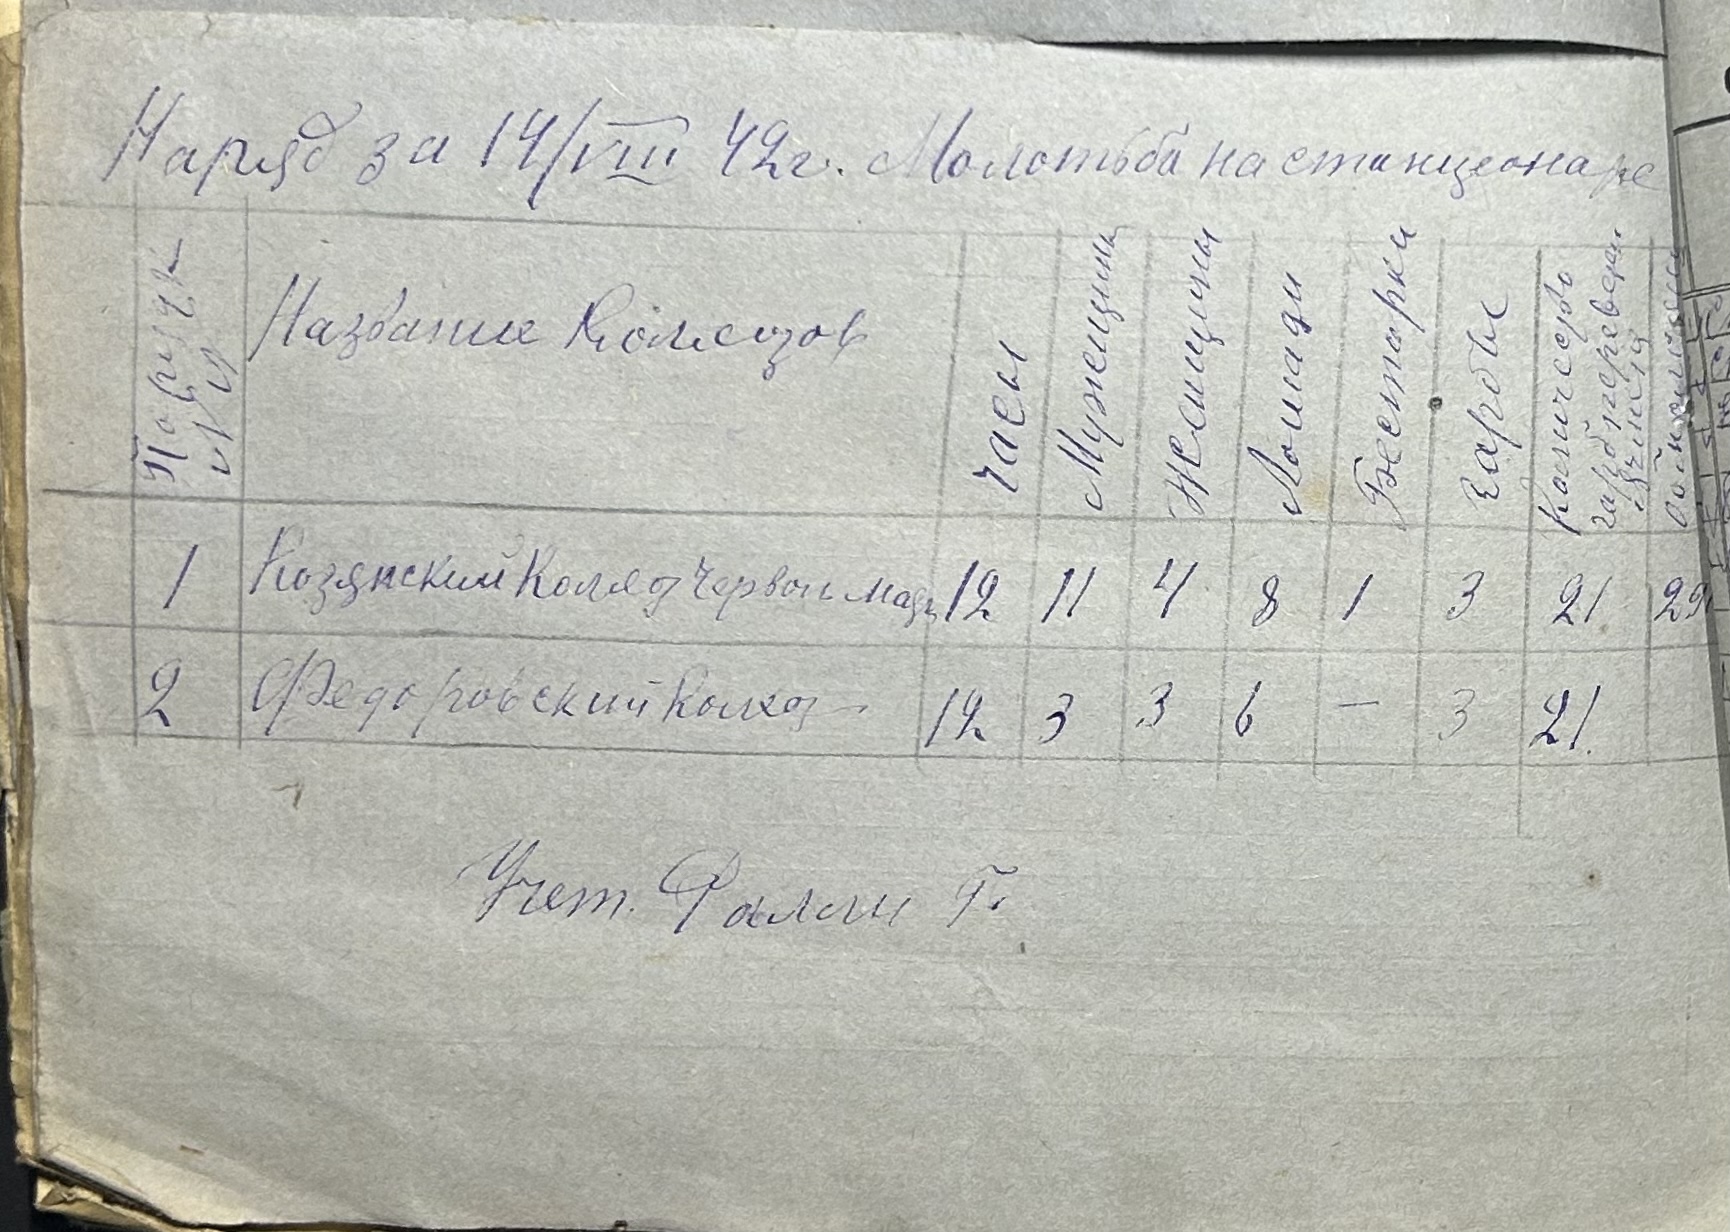 Наряд за 14/VIII 42г. Молотьба на станционаре
Порядк №№ Название Колхозов Часы Мужещины Женщины Лошади Бестарки Гарбы Количество гарб перевез.
1 Козянский Колхоз Червон Маяк 12 11 4 8 1 3 21 29
2 Федоровский Колхоз 12 3 3 6 — 3 21.
Учет. Г.